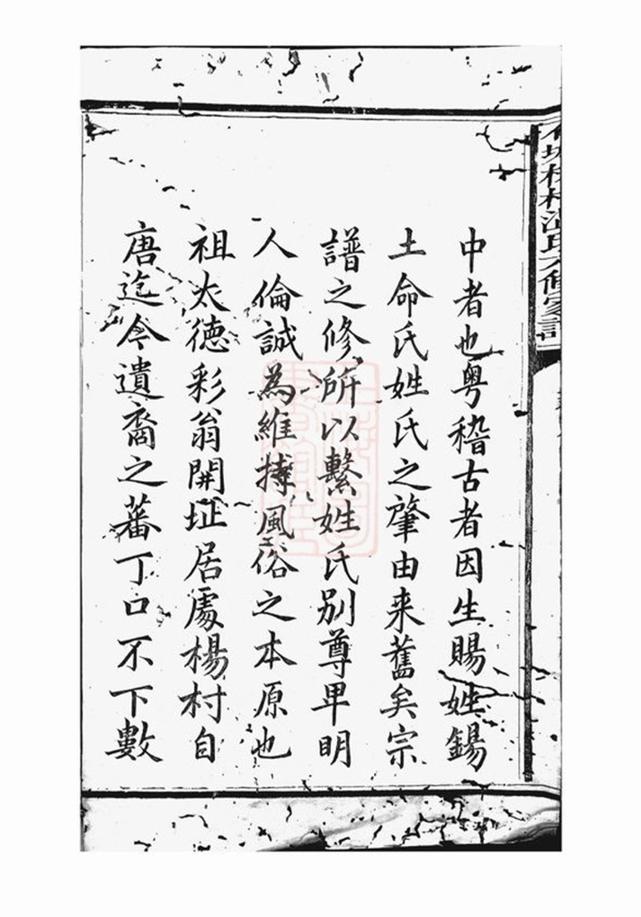 中者也粤稽古者因生賜姓錫
土命氏姓氏之肇由来舊矣宗
譜之修所以繫姓氏别尊卑明
人倫誠為維摶風俗之本原也
祖太德彩翁開址居處楊村自
唐迄今遺裔之蕃丁口不下數